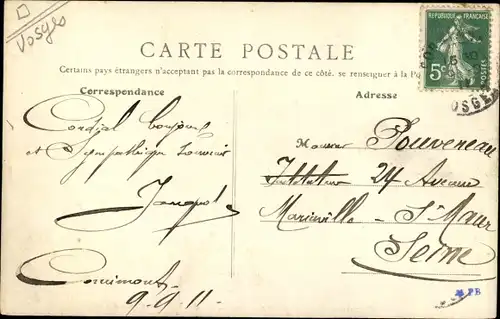 Vosges
CARTE POSTALE
Certains pays étrangers n'acceptant pas la correspondance de ce côté, se renseigner à la
Correspondance
Adresse
REPUBLIQUE FRANÇAISE
5c
POSTES
OSGES
Cordial bonjour
et Sympathique souvenir
Cornimont
9.9.11.
Monsieur Pouveneau
Instituteur 24 Avenue
Marinville - St Maur
Seine
PB